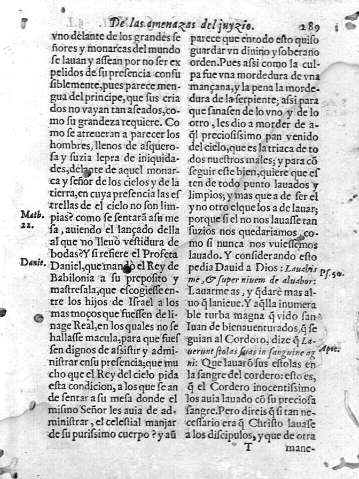 De las amenazas del juyzio. 289
vno delante de los grandes se
ñores y monarcas del mundo
se lauan y assean por no ser ex
pelidos de su presencia confu
siblemente, pues parece men-
gua del principe, que sus cria
dos no vayan tan aseados, co-
mo su grandeza requiere. Co
mo se atreueran a parecer los
hombres, llenos de asquero-
sa y suzia lepra de iniquida-
des, delante de aquel monar-
ca y señor de los cielos y de la
tierra, en cuya presencia las es
trellas de el cielo no son lim-
pias? como se sentarà a su me
sa, auiendo el lançado della
Math. 22.
al que no lleuò vestidura de
bodas? Y si refiere el Profeta
Daniel.
Daniel, que mandò el Rey de
Babilonia a su preposito y
mastresala, que escogiesse en-
tre los hijos de Israel a los
mas moços que fuessen de li-
nage Real, en los quales no se
hallasse macula, para que fues
sen dignos de assistir y admi-
nistrar en su presencia, que mu
cho que el Rey del cielo pida
esta condicion, a los que se an
de sentar a su mesa donde el
mismo Señor les auia de ad-
ministrar, el celestial manjar
de su purissimo cuerpo? y aũ
parece que en rodo esto quiso
guardar vn diuino y soberano
orden. Pues assi como la cul-
pa fue vna mordedura de vna
mançana, y la pena la morde-
dura de la serpiente; assi para
que sanassen de lo vno y de lo
otro, les dio a morder de a-
q̃l preciosissimo pan venido
del cielo, que es la triaca de to
dos nuestros males; y para cõ
seguir este bien, quiere que es
ten de todo punto lauados y
limpios, y mas que a de ser el
y no otro el que los a de lauar;
porque si el no nos lauasse tan
suzios nos quedariamos, co-
mo si nunca nos vuiessemos
lauado. Y considerando esto
pedia Dauid a Dios: Lauabis
Ps. 50.
me, & super niuem dealuabor:
Lauarme as, y q̃darè mas al-
uo q̃ la nieue. Y aq̃lla inumera
ble turba magna q̃ vido san
Iuan de bienauenturados, q̃ se
guian al Cordero, dize q̃ La-
Apoc.
uerunt stolas suas in sanguine ag
ni: Que lauarõ sus estolas en
la sangre del cordero: esto es,
q̃ el Cordero inocentissimo
los auia lauado cõ su preciosa
sangre. Pero direis q̃ si tan ne-
cessario era q̃ Christo lauasse
a los discipulos, y que de otra
T
mane-